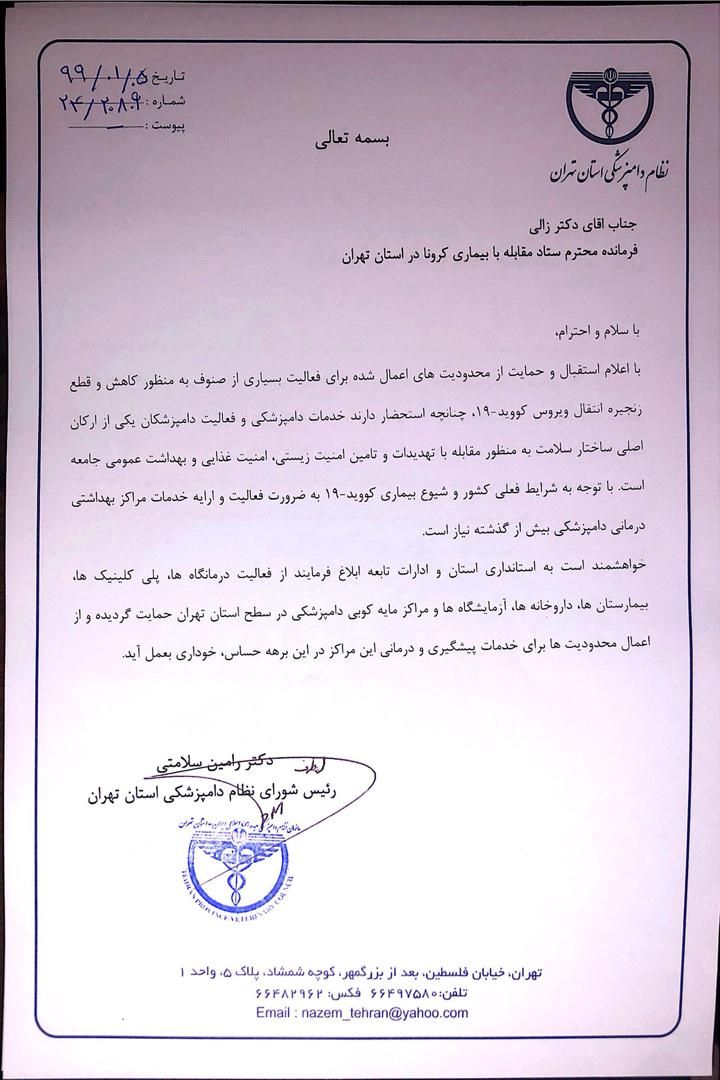 تاریخ: ۹۹/۰۱/۰۵
شماره: ۲۴/۲۰۸۹
پیوست: ــ
نظام دامپزشکی استان تهران
بسمه تعالی
جناب اقای دکتر زالی
فرمانده محترم ستاد مقابله با بیماری کرونا در استان تهران
با سلام و احترام،
با اعلام استقبال و حمایت از محدودیت های اعمال شده برای فعالیت بسیاری از صنوف به منظور کاهش و قطع
زنجیره انتقال ویروس کووید-۱۹، چنانچه استحضار دارند خدمات دامپزشکی و فعالیت دامپزشکان یکی از ارکان
اصلی ساختار سلامت به منظور مقابله با تهدیدات و تامین امنیت زیستی، امنیت غذایی و بهداشت عمومی جامعه
است. با توجه به شرایط فعلی کشور و شیوع بیماری کووید-۱۹ به ضرورت فعالیت و ارایه خدمات مراکز بهداشتی
درمانی دامپزشکی بیش از گذشته نیاز است.
خواهشمند است به استانداری استان و ادارات تابعه ابلاغ فرمایند از فعالیت درمانگاه ها، پلی کلینیک ها،
بیمارستان ها، داروخانه ها، آزمایشگاه ها و مراکز مایه کوبی دامپزشکی در سطح استان تهران حمایت گردیده و از
اعمال محدودیت ها برای خدمات پیشگیری و درمانی این مراکز در این برهه حساس، خوداری بعمل آید.
دکتر رامین سلامتی
رئیس شورای نظام دامپزشکی استان تهران
TEHRAN PROVINCE VETERINARY COUNCIL
تهران، خیابان فلسطین، بعد از بزرگمهر، کوچه شمشاد، پلاک ۵، واحد ۱
تلفن: ۶۶۴۹۷۵۸۰ فکس: ۶۶۴۸۲۹۶۲
Email : nazem_tehran@yahoo.com